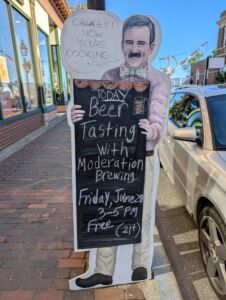 CRIKEY!
NOW
YOU'RE
COOKING!
TODAY
Beer
Tasting
with
Moderation
Brewing
Friday, June 28
3-5 PM
Free (21+)